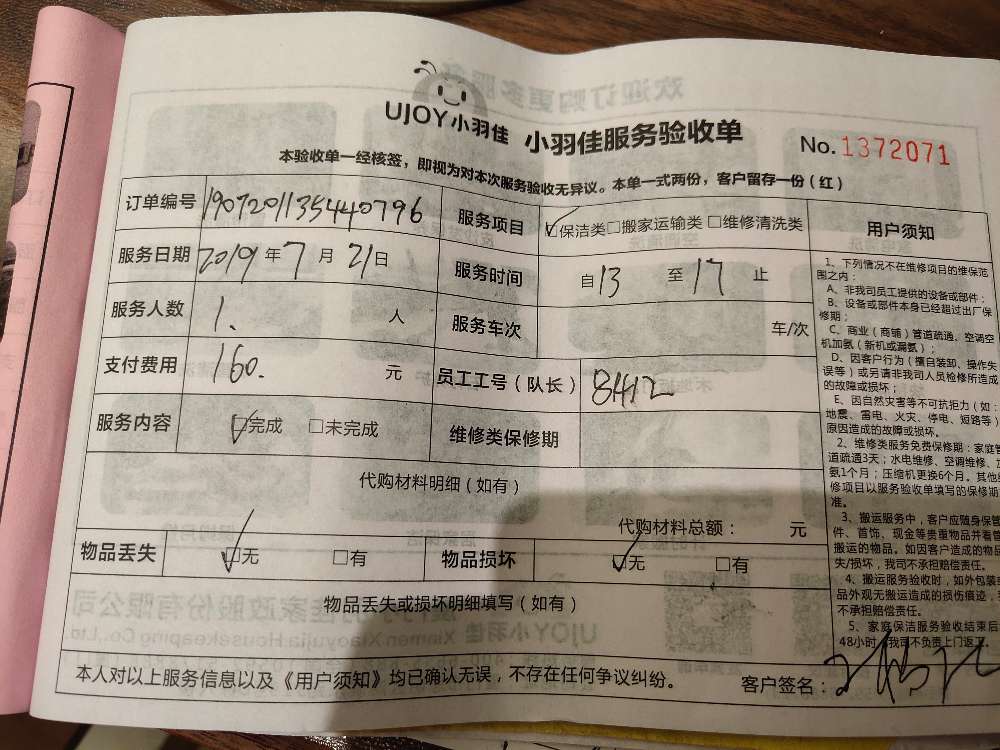 UJOY小羽佳 小羽佳服务验收单 No.1372071
本验收单一经核签，即视为对本次服务验收无异议。本单一式两份，客户留存一份（红）
订单编号 1907201135440796 服务项目 ☑保洁类□搬家运输类□维修清洗类 用户须知
服务日期 2019年7月21日 服务时间 自13 至17 止
服务人数 1. 人 服务车次 车/次
支付费用 160. 元 员工工号（队长） 8412
服务内容 ☑完成 □未完成 维修类保修期
代购材料明细（如有）
代购材料总额： 元
物品丢失 ☑无 □有 物品损坏 ☑无 □有
物品丢失或损坏明细填写（如有）
本人对以上服务信息以及《用户须知》均已确认无误，不存在任何争议纠纷。 客户签名：
1、下列情况不在维修项目的维保范
围之内：
A、非我司员工提供的设备或部件；
B、设备或部件本身已经超过出厂保
修期；
C、商业（商铺）管道疏通、空调空
机加氨（新机或漏氨）；
D、因客户行为（擅自装卸、操作失
误等）或另请非我司人员检修所造成
的故障或损坏；
E、因自然灾害等不可抗拒力（如：
地震、雷电、火灾、停电、短路等）
原因造成的故障或损坏。
2、维修类服务免费保修期：家庭管
道疏通3天；水电维修、空调维修、
氨1个月；压缩机更换6个月。其他
修项目以服务验收单填写的保修期
准。
3、搬运服务中，客户应随身保管
件、首饰、现金等贵重物品并看管
搬运的物品。如因客户造成的物品
失/损坏，我司不承担赔偿责任。
4、搬运服务验收时，如外包装
品外观无搬运造成的损伤痕迹，
不承担赔偿责任。
5、家庭保洁服务验收结束后
48小时，我司不负责上门返工。